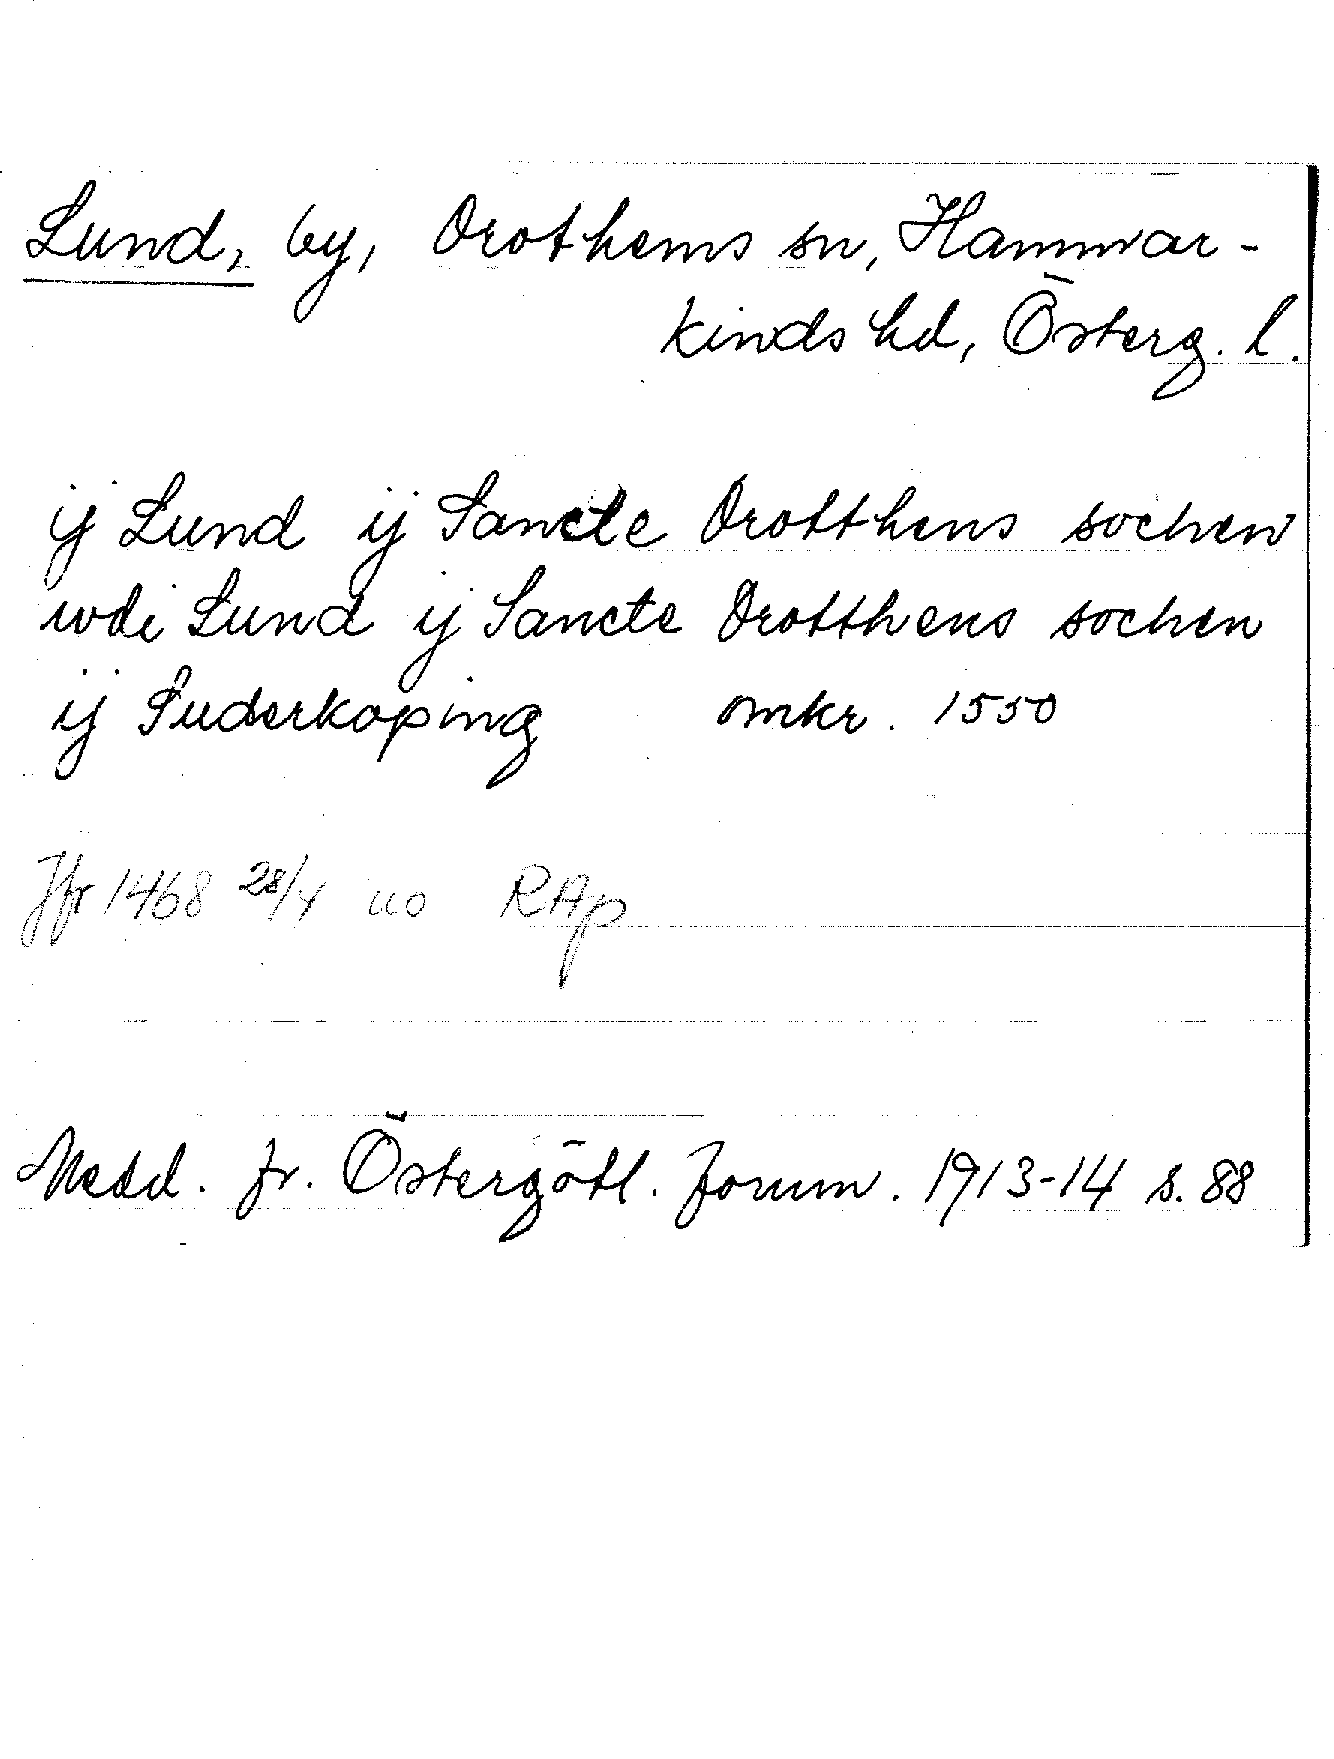 Lund, by, Drothems sn, Hammar-
kinds hd, Österg. l.
ij Lund ij Sancte Drotthens sochen
wdi Lund ij Sancte Drotthens sochen
ij Suderkoping omkr. 1550
Jfr 1468 28/4 uo RAp
Medd. fr. Östergötl. fornm. 1913-14 s. 88